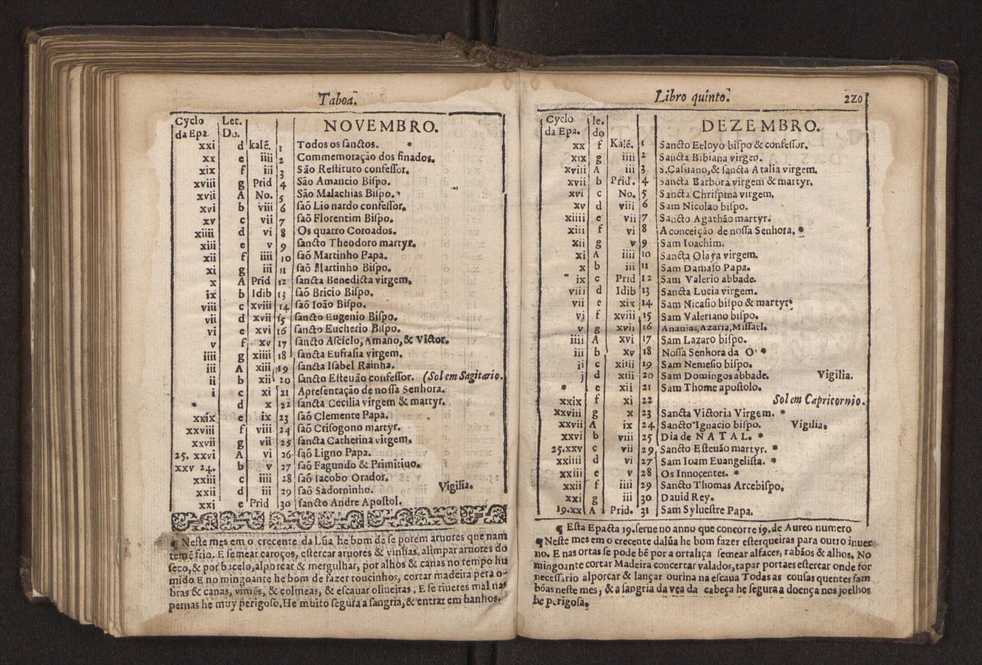 Taboa.
Cyclo Let. NOVEMBRO.
da Epa. Do.
xxi d kalē. 1 Todos os sanctos.
xx e iiii 2 Commemoração dos finados.
xix f iii 3 São Restituto confessor.
xviii g Prid 4 São Amancio Bispo.
xvii A No. 5 São Malachias Bispo.
xvi b viii 6 saõ Lionardo confessor.
xv c vii 7 saõ Florentim Bispo.
xiiii d vi 8 Os quatro Coroados.
xiii e v 9 sancto Theodoro martyr.
xii f iiii 10 saõ Martinho Papa.
xi g iii 11 saõ Martinho Bispo.
x A Prid 12 sancta Benedicta virgem.
ix b Idib 13 saõ Bricio Bispo.
viii c xviii 14 saõ Ioão Bispo.
vii d xvii 15 sancto Eugenio Bispo.
vi e xvi 16 sancto Eucherio Bispo.
v f xv 17 sancto Asciclo, Amano, & Victor.
iiii g xiiii 18 sancta Eufrasia virgem.
iii A xiii 19 sancta Isabel Rainha.
ii b xii 20 sancto Esteuão confessor. (Sol em Sagitario.
i c xi 21 Apresentação de nossa Senhora.
d x 22 sancta Cecilia virgem & martyr.
xxix e ix 23 saõ Clemente Papa.
xxviii f viii 24 saõ Crisogono martyr.
xxvii g vii 25 sancta Catherina virgem.
25. xxvi A vi 26 saõ Ligno Papa.
xxv 24. b v 27 saõ Fagundo & Primitiuo.
xxiii c iiii 28 saõ Iacobo Orador.
xxii d iii 29 saõ Sadorninho. Vigilia.
xxi e Prid 30 sancto Andre Apostol.
¶ Neste mes em o crecente da Lũa he bom de se porem aruores que nam
temẽ frio. E semear caroços, estercar aruores & vinhas, alimpar aruores do
seco, & por bacelo, alporcar & mergulhar, por alhos & canas no tempo hu
mido. E no mingoante he bom de fazer toucinhos, cortar madeira pera o-
bras & canas, vimẽs, & colmeas, & escauar oliueiras. E se tiueres mal nas
pernas he muy perigoso. He muito segura a sangria, & entrar em banhos.
Libro quinto. 220
Cyclo le. DEZEMBRO.
da Epa. do
xx f Kalē. 1 Sancto Eeloyo bispo & confessor.
xix g iiii 2 Sancta Bibiana virgem.
xviii A iii 3 S. Casuano, & sancta Atalia virgem.
xvii b Prid. 4 Sancta Barbora virgem & martyr.
xvi c No. 5 Sancta Chrispina virgem.
xv d viii 6 Sam Nicolao bispo.
xiiii e vii 7 Sancto Agathão martyr.
xiii f vi 8 A conceição de nossa Senhora.
xii g v 9 Sam Ioachim.
xi A iiii 10 Sancta Olaya virgem.
x b iii 11 Sam Damaso Papa.
ix c Prid 12 Sam Valerio abbade.
viii d Idib 13 Sancta Lucia virgem.
vii e xix 14 Sam Nicasio bispo & martyr.
vj f xviii 15 Sam Valeriano bispo.
v g xvii 16 Ananias, Azaria, Missael.
iiii A xvi 17 Sam Lazaro bispo.
iii b xv 18 Nossa Senhora da O
ii c xiiii 19 Sam Nemesio bispo.
j d xiii 20 Sam Domingos abbade. Vigilia.
e xii 21 Sam Thome apostolo.
xxix f xi 22 Sol em Capricornio.
xxviii g x 23 Sancta Victoria Virgem.
xxvii A ix 24 Sancto Ignacio bispo. Vigilia.
xxvi b viii 25 Dia de NATAL.
25.xxv c vii 29 Sancto Esteuão martyr.
xxiiii d vi 27 Sam Ioam Euangelista.
xxiii e v 28 Os Innocentes.
xxii f iiii 29 Sancto Thomas Arcebispo.
xxi g iii 30 Dauid Rey.
19.xx A Prid. 31 Sam Syluestre Papa.
¶ Esta Epacta 19. serue no anno que concorre 19. de Aureo numero
¶ Neste mes em o crecente dalũa he bom fazer esterqueiras para outro inuer
no. E nas ortas se pode bẽ por a ortaliça semear alfaces, rabãos & alhos. No
mingoante cortar Madeira concertar valados, tapar portaes estercar onde for
necessario alporcar & lançar ourina na escaua Todas as cousas quentes sam
bõas neste mes, & a sangria da vea da cabeça he segura a doença nos joelhos
he perigosa.